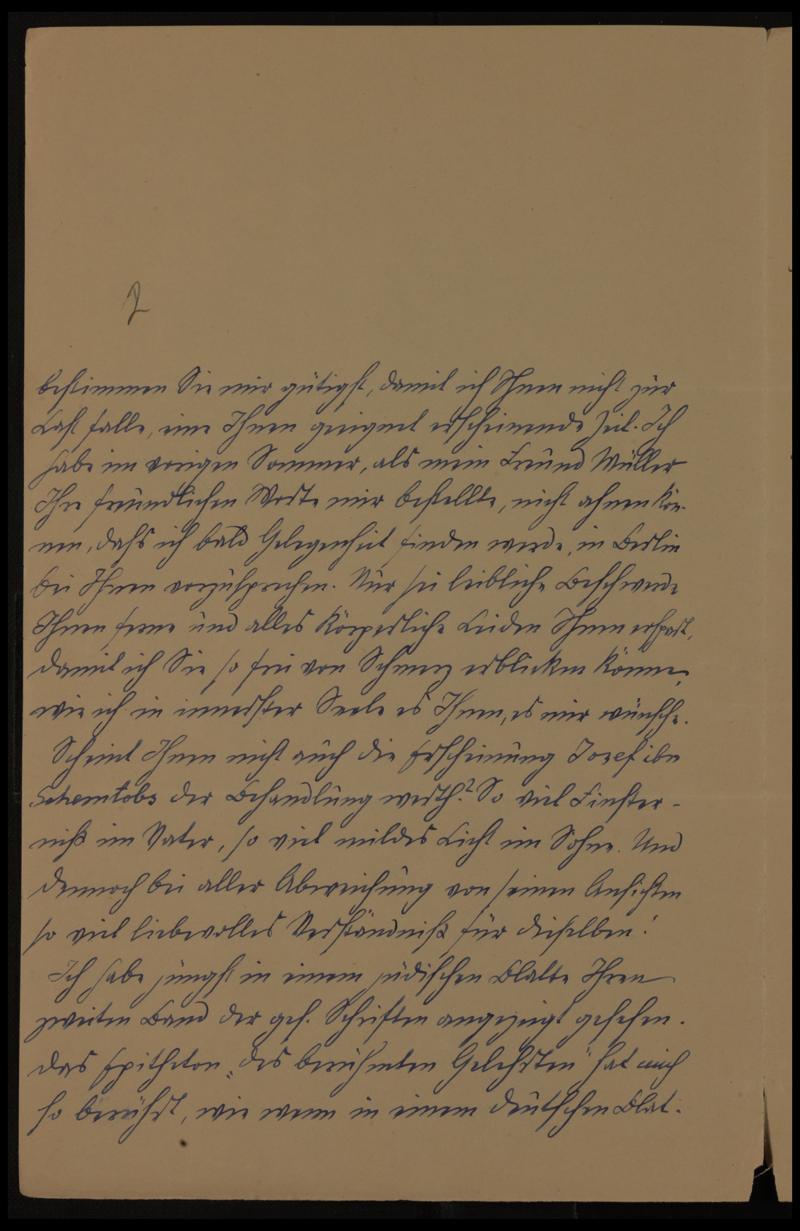 2
bestimmen Sie mir gütigst, damit ich Ihnen nicht zur
Last falle, eine Ihnen geeignet erscheinende Zeit. Ich
habe im vorigen Sommer, als mein Freund Müller
Ihre freundlichen Worte mir bestellte, nicht ahnen kön-
nen, daß ich bald Gelegenheit finden werde, in Berlin
bei Ihnen vorzusprechen. Nur sei leibliche Beschwerde
Ihnen ferne und alles körperliche Leiden Ihnen erspart,
damit ich Sie so frei von Schmerz erblicken könne,
wie ich in innerster Seele es Ihnen, es mir wünsche.
Scheint Ihnen nicht auch die Erscheinung Josef ibn
Schemtobs der Behandlung werth? So viel Finster-
niß im Vater, so viel mildes Licht im Sohne. Und
dennoch bei aller Abweichung von seinen Ansichten
so viel liebevolles Verständniß für dieselben!
Ich habe jüngst in einem jüdischen Blatte Ihren
zweiten Band der ges. Schriften angezeigt gesehen.
Das Epitheton „des berühmten Gelehrten" hat mich
so berührt, wie wenn in einem deutschen Blat-